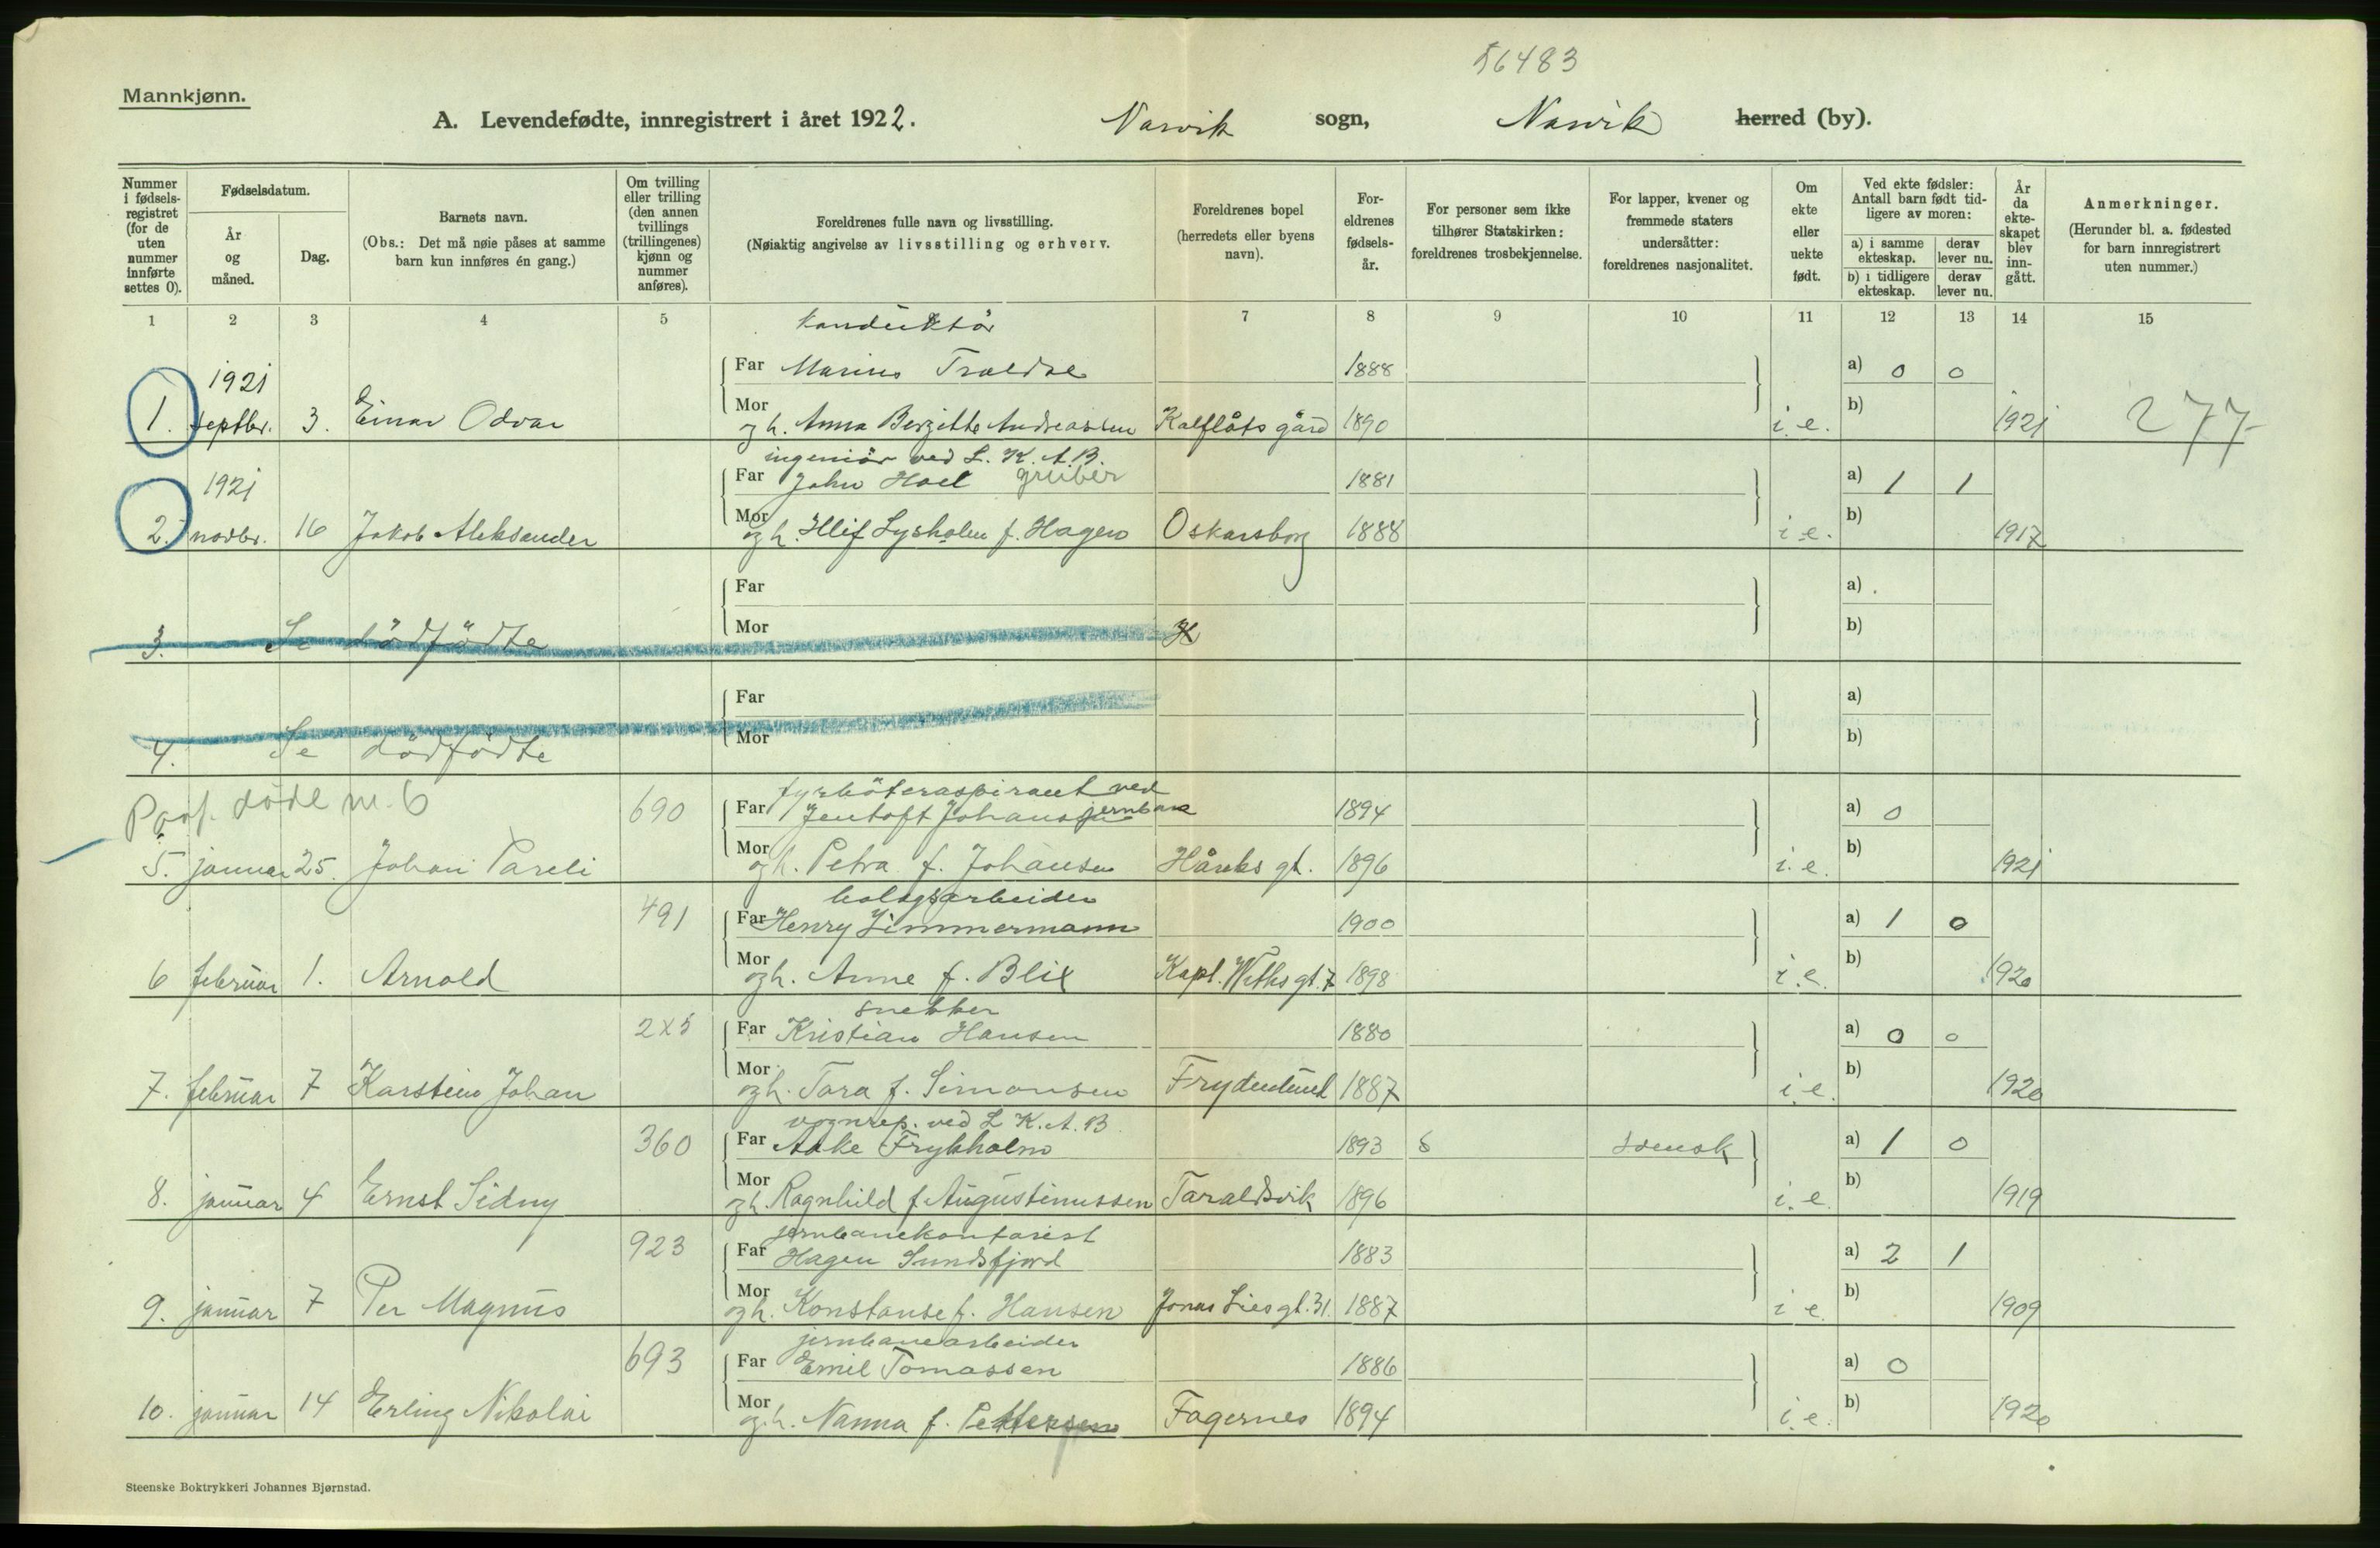 56483
Mannkjønn.
A. Levendefødte, innregistrert i året 1922. Narvik sogn, Narvik herred (by).
Nummer i fødsels-registret (for de uten nummer innførte settes 0).
Fødselsdatum.
År og måned.
Dag.
Barnets navn.
(Obs.: Det må nøie påses at samme barn kun innføres én gang.)
Om tvilling eller trilling (den annen tvillings (trillingenes) kjønn og nummer anføres).
Foreldrenes fulle navn og livsstilling.
(Nøiaktig angivelse av livsstilling og erhverv.
Foreldrenes bopel (herredets eller byens navn).
For-eldrenes fødsels-år.
For personer som ikke tilhører Statskirken: foreldrenes trosbekjennelse.
For lapper, kvener og fremmede staters undersåtter: foreldrenes nasjonalitet.
Om ekte eller uekte født.
Ved ekte fødsler: Antall barn født tid-ligere av moren:
a) i samme ekteskap.
derav lever nu.
b) i tidligere ekteskap.
derav lever nu.
År da ekte-skapet blev inn-gått.
Anmerkninger.
(Herunder bl. a. fødested for barn innregistrert uten nummer.)
1 2 3 4 5 7 8 9 10 11 12 13 14 15
konduktör
1921 Far Marius Troldal 1888 a) 0 0
1. septbr. 3. Einar Odvar Mor og h. Anna Bergitte Andreassen Kalflåts gård 1890 i.e. b) 1921 277
ingeniör ved L. K. A. B.
1921 Far John Hoel gruber 1881 a) 1 1
2. novbr. 16 Jakob Aleksander Mor og h. Lysholm f. Hagen Oskarsborg 1888 i e. b) 1917
Far a)
3. Se dödfödte Mor b)
Far a)
4. Se dödfödte Mor b)
fyrböteraspirant ved
døde nr. 6 690 Far Jentoft Johansen jernbane 1894 a) 0
5. januar 25. Johan Pareli Mor og h. Petra f. Johansen Håreks gt. 1896 i.e. b) 1921
bolagsarbeider
491 Far Henry Zimmermann 1900 a) 1 0
6 februar 1. Arnold Mor og h. Anne f. Blix Kapt. Withs gt. 7 1898 i.e. b) 1920
snekker
2x5 Far Kristian Hansen 1880 a) 0 0
7. februar 7 Karstein Johan Mor og h. Tora f. Simonsen Frydenlund 1887 i e. b) 1920
vognrep. ved L. K. A. B.
360 Far Aake Frykholm 1893 6 svensk a) 1 0
8. januar 4 Ernst Sidny Mor og h. Ragnhild f Augustinussen Taraldsvik 1896 i.e. b) 1919
jernbanekontorist
923 Far Hagen Sundsfjord 1883 a) 2 1
9. januar 7 Per Magnus Mor og h. Konstanse f. Hansen Jonas Lies gt. 31. 1887 i e. b) 1909
jernbanearbeider
693 Far Emil Tomassen 1886 a) 0
10. januar 14 Erling Nikolai Mor og h. Nanna f. Pettersen Fagernes 1894 i.e. b) 1920
Steenske Boktrykkeri Johannes Bjørnstad.